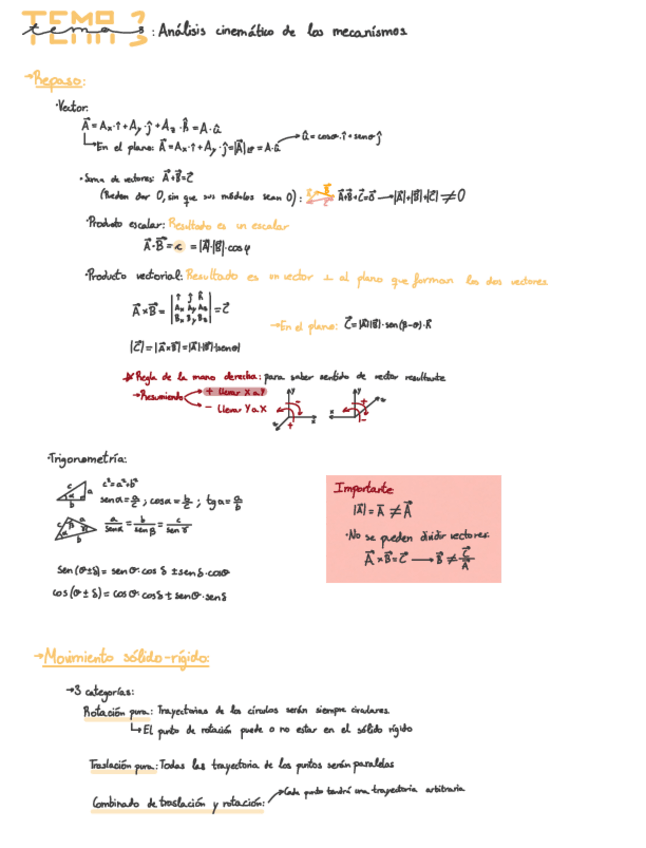 TEMA 3
tema 3: Análisis cinemático de los mecanismos
→Repaso:
·Vector:
A⃗ = Ax·î + Ay·ĵ + Az·k̂ = A·û
↳En el plano: A⃗ = Ax·î + Ay·ĵ = |A⃗| = A·û → û = cosθ·î + senθ ĵ
·Suma de vectores: A⃗+B⃗=C⃗
(Pueden dar 0, sin que sus módulos sean 0): A⃗+B⃗+C⃗=0⃗ → |A⃗|+|B⃗|+|C⃗| ≠ 0
·Producto escalar: Resultado es un escalar
A⃗·B⃗ = c = |A⃗|·|B⃗|·cos φ
·Producto vectorial: Resultado es un vector ⊥ al plano que forman los dos vectores
î ĵ k̂
A⃗ × B⃗ = | Ax Ay Az | = C⃗
Bx By Bz
→En el plano: C⃗ = |A⃗||B⃗|·sen(β-θ)·k̂
|C⃗| = |A⃗×B⃗| = |A⃗|·|B⃗|·|senθ|
*Regla de la mano derecha: para saber sentido de vector resultante
→Resumiendo + llevar X a Y
- llevar Y a X
y - x z +
y + x -
·Trigonometría:
c a α b c²=a²+b²
sen α = a/c ; cos α = b/c ; tg α = a/b
c β a α γ b a/sen α = b/sen β = c/sen γ
sen (θ±δ) = senθ·cos δ ± sen δ·cosθ
cos (θ± δ) = cosθ·cosδ ± senθ·senδ
Importante
|A⃗| = A ≠ A⃗
·No se pueden dividir vectores.
A⃗ × B⃗ = C⃗ → B⃗ ≠ C⃗/A⃗
→Movimiento sólido-rígido:
→3 categorías:
Rotación pura: Trayectorias de los círculos serán siempre circulares
↳El punto de rotación puede o no estar en el sólido rígido
Traslación pura: Todas las trayectoria de los puntos serán paralelas
Combinado de traslación y rotación: →Cada punto tendrá una trayectoria arbitraria